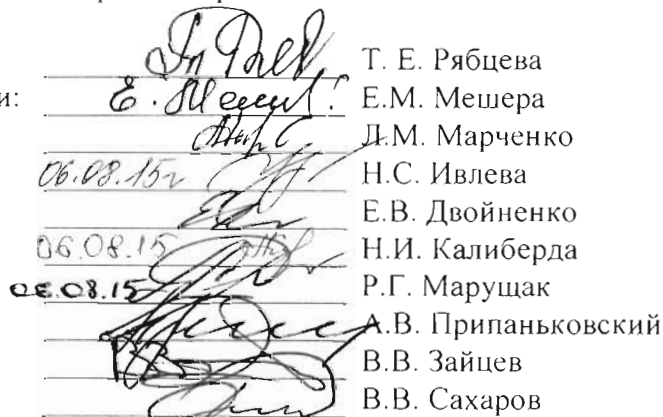 Т. Е. Рябцева
и: Е.М. Мешера
Л.М. Марченко
06.08.15г Н.С. Ивлева
Е.В. Двойненко
06.08.15 Н.И. Калиберда
06.08.15 Р.Г. Марущак
А.В. Припаньковский
В.В. Зайцев
В.В. Сахаров